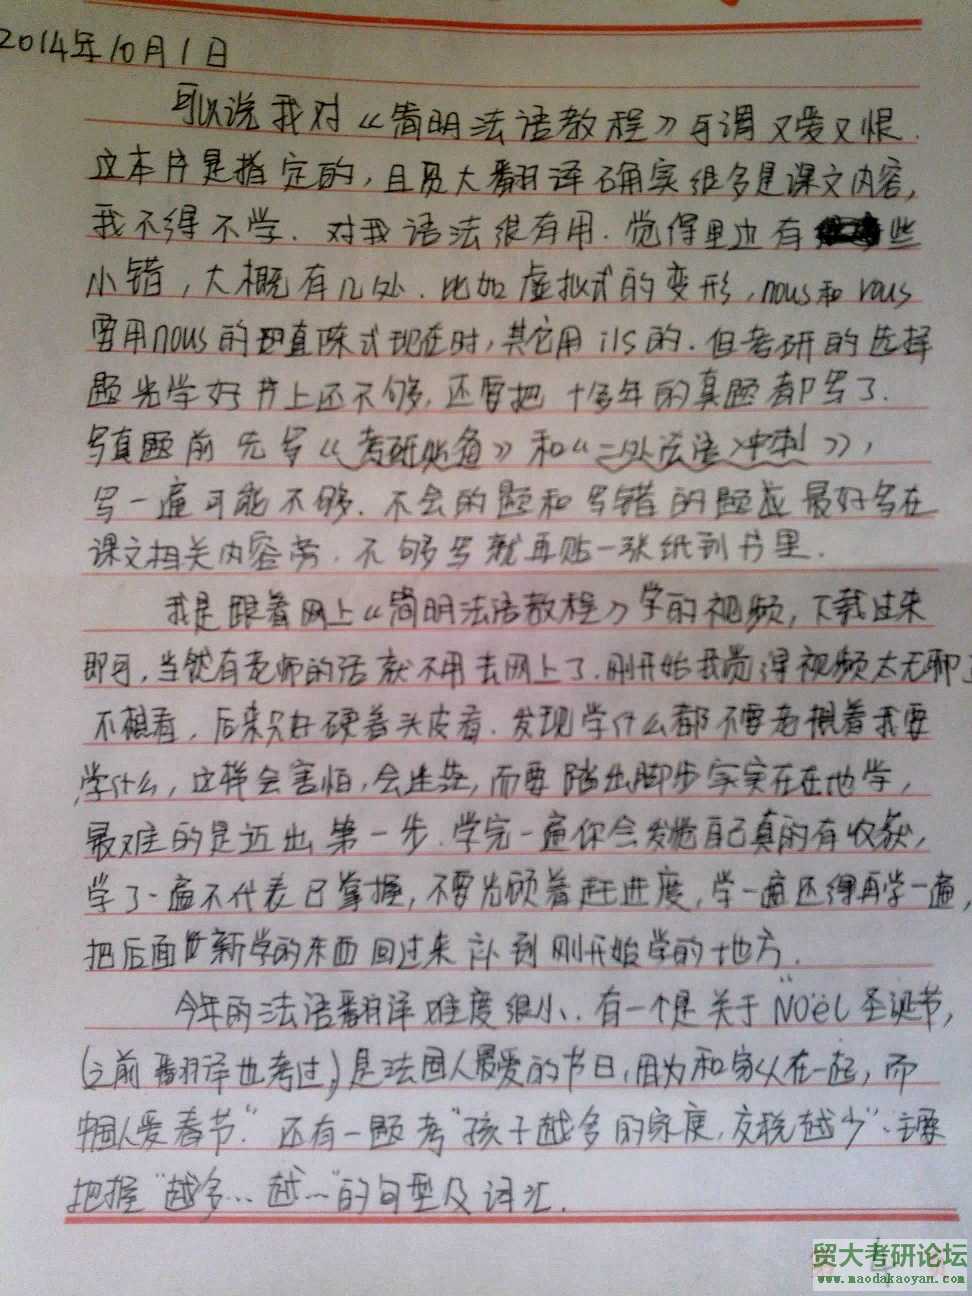 2014年10月1日
可以说我对《简明法语教程》可谓又爱又恨.
这本书是指定的,且贸大翻译确实很多是课文内容,
我不得不学.对我语法很有用.觉得里边有些
小错,大概有几处.比如虚拟式的变形,nous和vous
要用nous的直陈式现在时,其它用ils的.但考研的选择
题光学好书上还不够,还要把十多年的真题都写了.
写真题前先写《考研必备》和《二外法语冲刺》,
写一遍可能不够.不会的题和写错的题应最好写在
课文相关内容旁.不够写就再贴一张纸到书里.
我是跟着网上《简明法语教程》学的视频,下载过来
即可,当然有老师的话就不用去网上了.刚开始我觉得视频太无聊了
不想看,后来只好硬着头皮看.发现学什么都不要老想着我要
学什么,这样会害怕,会迷茫,而要踏出脚步实实在在地学,
最难的是迈出第一步.学完一遍你会发觉自己真的有收获,
学了一遍不代表已掌握,不要光顾着赶进度,学一遍还得再学一遍,
把后面新学的东西回过来补到刚开始学的地方.
今年的法语翻译难度很小.有一个是关于"Noël圣诞节,
(之前翻译也考过,)是法国人最爱的节日,因为和家人在一起,而
中国人爱春节".还有一题考"孩子越多的家庭,交税越少".主要
把握"越多…越…"的句型及词汇.
贸大考研论坛
www.maodakaoyan.com